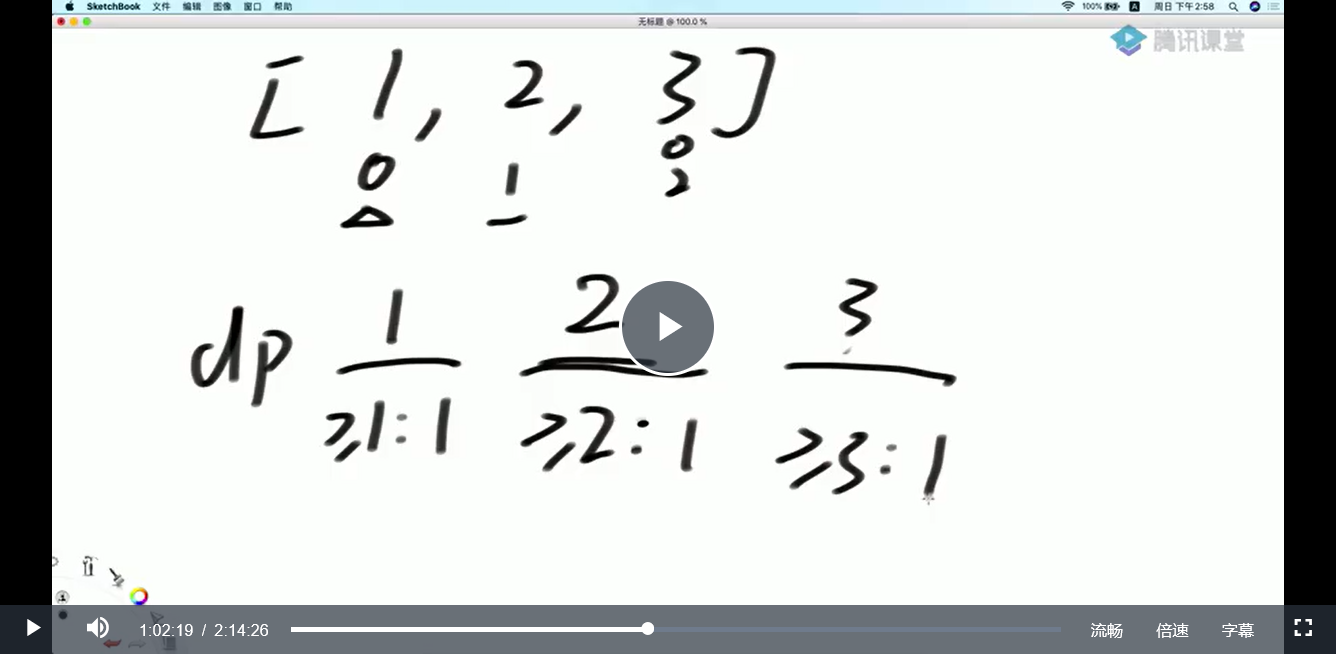 SketchBook 文件 编辑 图像 窗口 帮助 100% A 周日 下午2:58
无标题 @ 100.0 %
腾讯课堂
[ 1 , 2 , 3 ]
0 1 0
2
dp 1 2 3
≥1:1 ≥2:1 ≥3:1
1:02:19 / 2:14:26 流畅 倍速 字幕